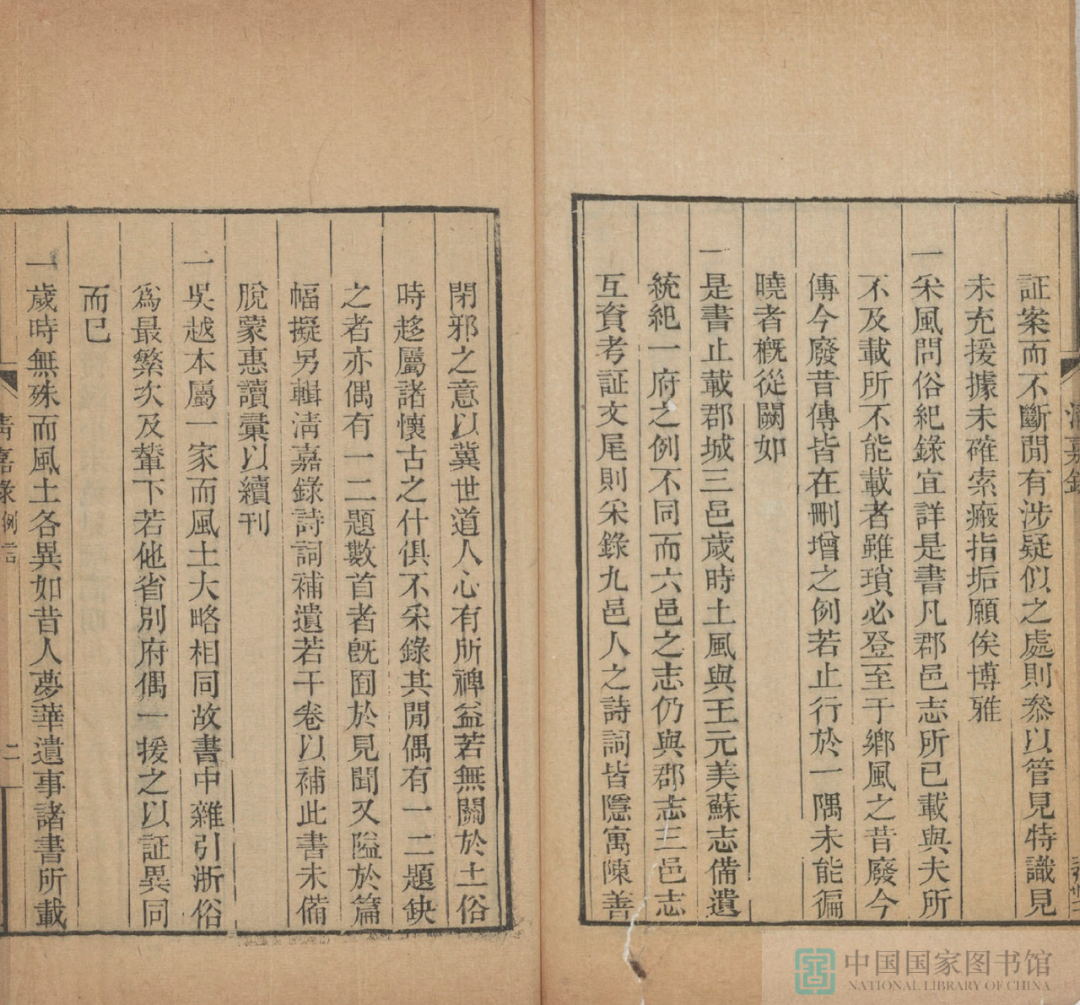 証案而不斷閒有涉疑似之處則叅以管見特識見
未充援據未確索瘢指垢願俟博雅
一采風問俗紀錄宜詳是書凡郡邑志所已載與夫所
不及載所不能載者雖瑣必登至于鄉風之昔廢今
傳今廢昔傳皆在刪增之例若止行於一隅未能徧
曉者槪從闕如
一是書止載郡城三邑歲時土風與王元美蘇志備遺
統紀一府之例不同而六邑之志仍與郡志三邑志
互資考証文尾則采錄九邑人之詩詞皆隱寓陳善
閉邪之意以冀世道人心有所裨益若無關於土俗
時趍屬諸懷古之什俱不采錄其閒偶有一二題缺
之者亦偶有一二題數首者旣囿於見聞又隘於篇
幅擬另輯淸嘉錄詩詞補遺若干卷以補此書未備
脫蒙惠讀彙以續刊
一吳越本屬一家而風土大略相同故書中雜引浙俗
爲最緐次及輦下若他省別府偶一援之以証異同
而已
一歲時無殊而風土各異如昔人夢華遺事諸書所載
淸嘉錄 例言 二
中国国家图书馆
NATIONAL LIBRARY OF CHINA